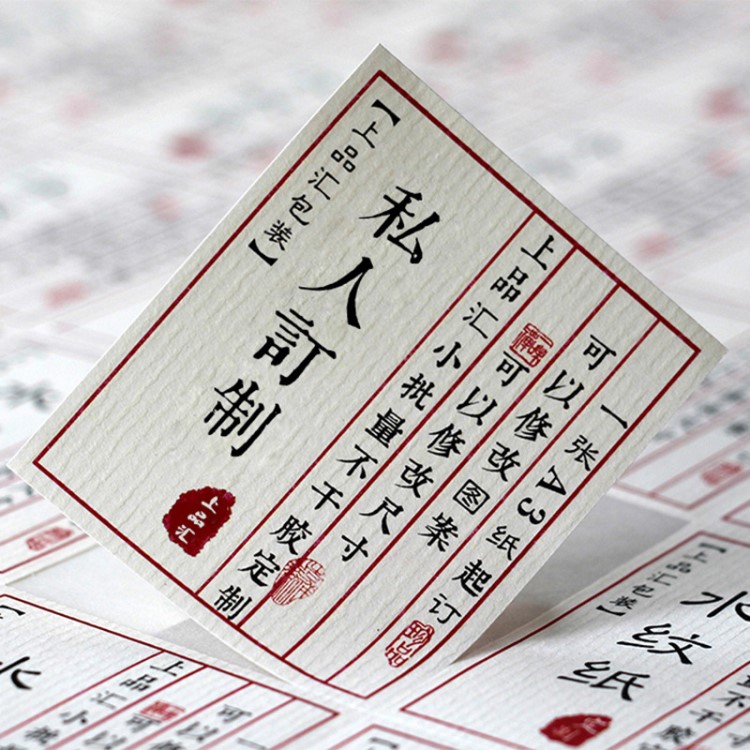 一张A3纸起订
可以修改图案
可以修改尺寸
上品汇小批量不干胶定制
私人訂制
上品汇
【上品汇包装】
【上品汇包装】
水纹纸
水
上品汇小批
可以
可以